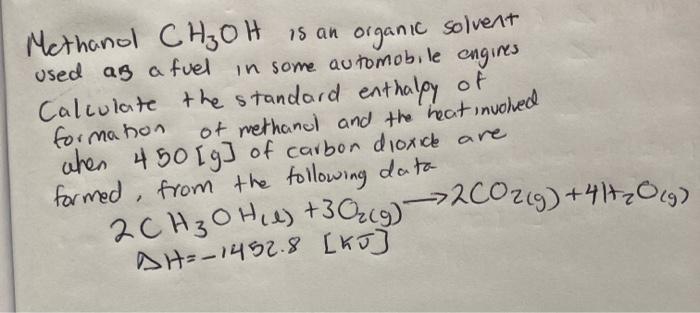 Methanol CH3OH is an organic solvent
used as a fuel in some automobile engines
Calculate the standard enthalpy of
formation of methanol and the heat involved
when 450 [g] of carbon dioxide are
formed, from the following data
2CH3OH(l) + 3O2(g) → 2CO2(g) + 4H2O(g)
ΔH = -1452.8 [KJ]